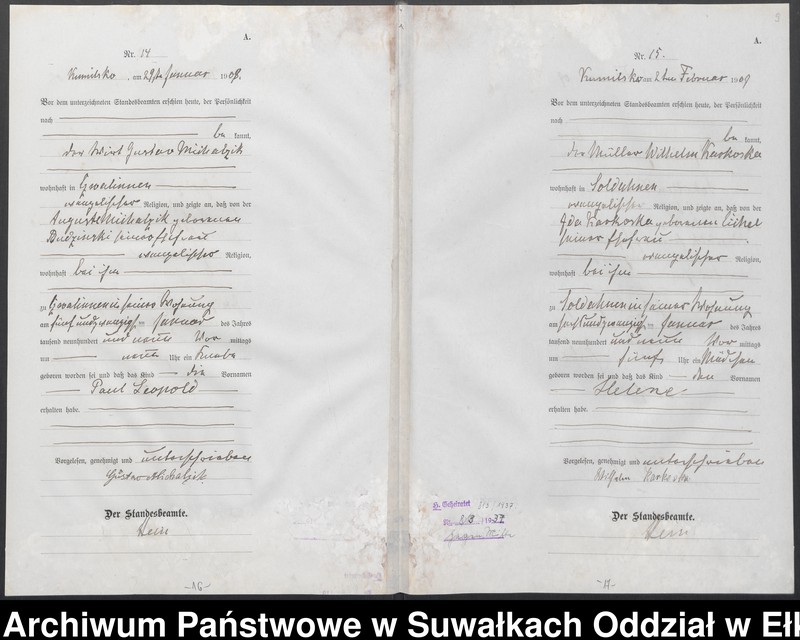 A.
Nr. 14
Kumilsko, am 29ten Januar 1909.
Vor dem unterzeichneten Standesbeamten erschien heute, der Persönlichkeit
nach
be kannt,
der Wirt Gustav Michalzik
wohnhaft in Gwalinnen
evangelischer Religion, und zeigte an, daß von der
Auguste Michalzik geborenen
Budzinski seiner Ehefrau
evangelischer Religion,
wohnhaft bei ihm
zu Gwalinnen in seiner Wohnung
am fünfundzwanzigsten Januar des Jahres
tausend neunhundert und neun Vor mittags
um neun Uhr ein Knabe
geboren worden sei und daß das Kind die Vornamen
Paul Leopold
erhalten habe.
Vorgelesen, genehmigt und unterschrieben
Gustav Michalzik
Der Standesbeamte.
-16-
9
A.
Nr. 15.
Kumilsko am 2ten Februar 1909
Vor dem unterzeichneten Standesbeamten erschien heute, der Persönlichkeit
nach
be kannt,
der Müller Wilhelm Karkoska
wohnhaft in Soldahnen
evangelischer Religion, und zeigte an, daß von der
Ida Karkoska geborenen
seiner Ehefrau
evangelischer Religion,
wohnhaft bei ihm
zu Soldahnen in seiner Wohnung
am Januar des Jahres
tausend neunhundert und neun Vor mittags
um fünf Uhr ein Mädchen
geboren worden sei und daß das Kind den Vornamen
Helene
erhalten habe.
Vorgelesen, genehmigt und unterschrieben
Wilhelm Karkoska
Der Standesbeamte.
-17-
Archiwum Państwowe w Suwałkach Oddział w Eł